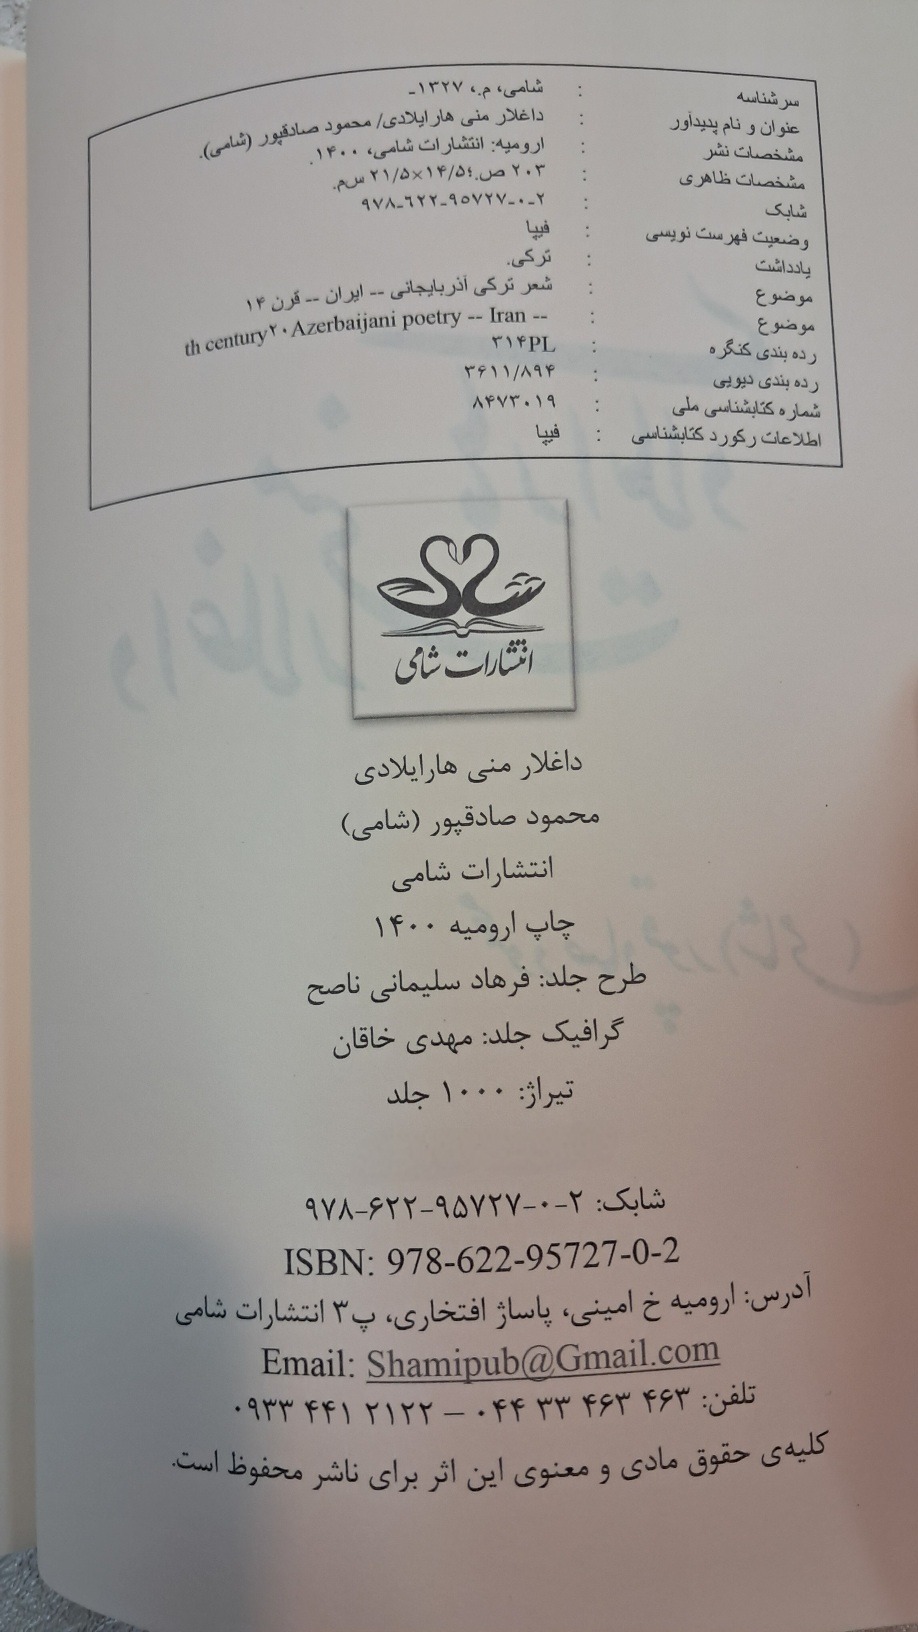 سرشناسه : شامی، م.، ۱۳۲۷ـ
عنوان و نام پدیدآور : داغلار منی هارایلادی/ محمود صادقپور (شامی).
مشخصات نشر : ارومیه: انتشارات شامی، ۱۴۰۰.
مشخصات ظاهری : ۲۰۳ ص.؛ ۱۴/۵×۲۱/۵ س‌م.
شابک : ۹۷۸-۶۲۲-۹۵۷۲۷-۰-۲
وضعیت فهرست نویسی : فیپا
یادداشت : ترکی.
موضوع : شعر ترکی آذربایجانی -- ایران -- قرن ۱۴
موضوع : th century۲۰ Azerbaijani poetry -- Iran --
رده بندی کنگره : ۳۱۴PL
رده بندی دیویی : ۳۶۱۱/۸۹۴
شماره کتابشناسی ملی : ۸۴۷۳۰۱۹
اطلاعات رکورد کتابشناسی : فیپا
انتشارات شامی
داغلار منی هارایلادی
محمود صادقپور (شامی)
انتشارات شامی
چاپ ارومیه ۱۴۰۰
طرح جلد: فرهاد سلیمانی ناصح
گرافیک جلد: مهدی خاقان
تیراژ: ۱۰۰۰ جلد
شابک: ۲-۰-۹۵۷۲۷-۶۲۲-۹۷۸
ISBN: 978-622-95727-0-2
آدرس: ارومیه خ امینی، پاساژ افتخاری، پ۳ انتشارات شامی
Email: Shamipub@Gmail.com
تلفن: ۴۶۳ ۴۶۳ ۳۳ ۰۴۴ – ۲۱۲۲ ۴۴۱ ۰۹۳۳
کلیه‌ی حقوق مادی و معنوی این اثر برای ناشر محفوظ است.